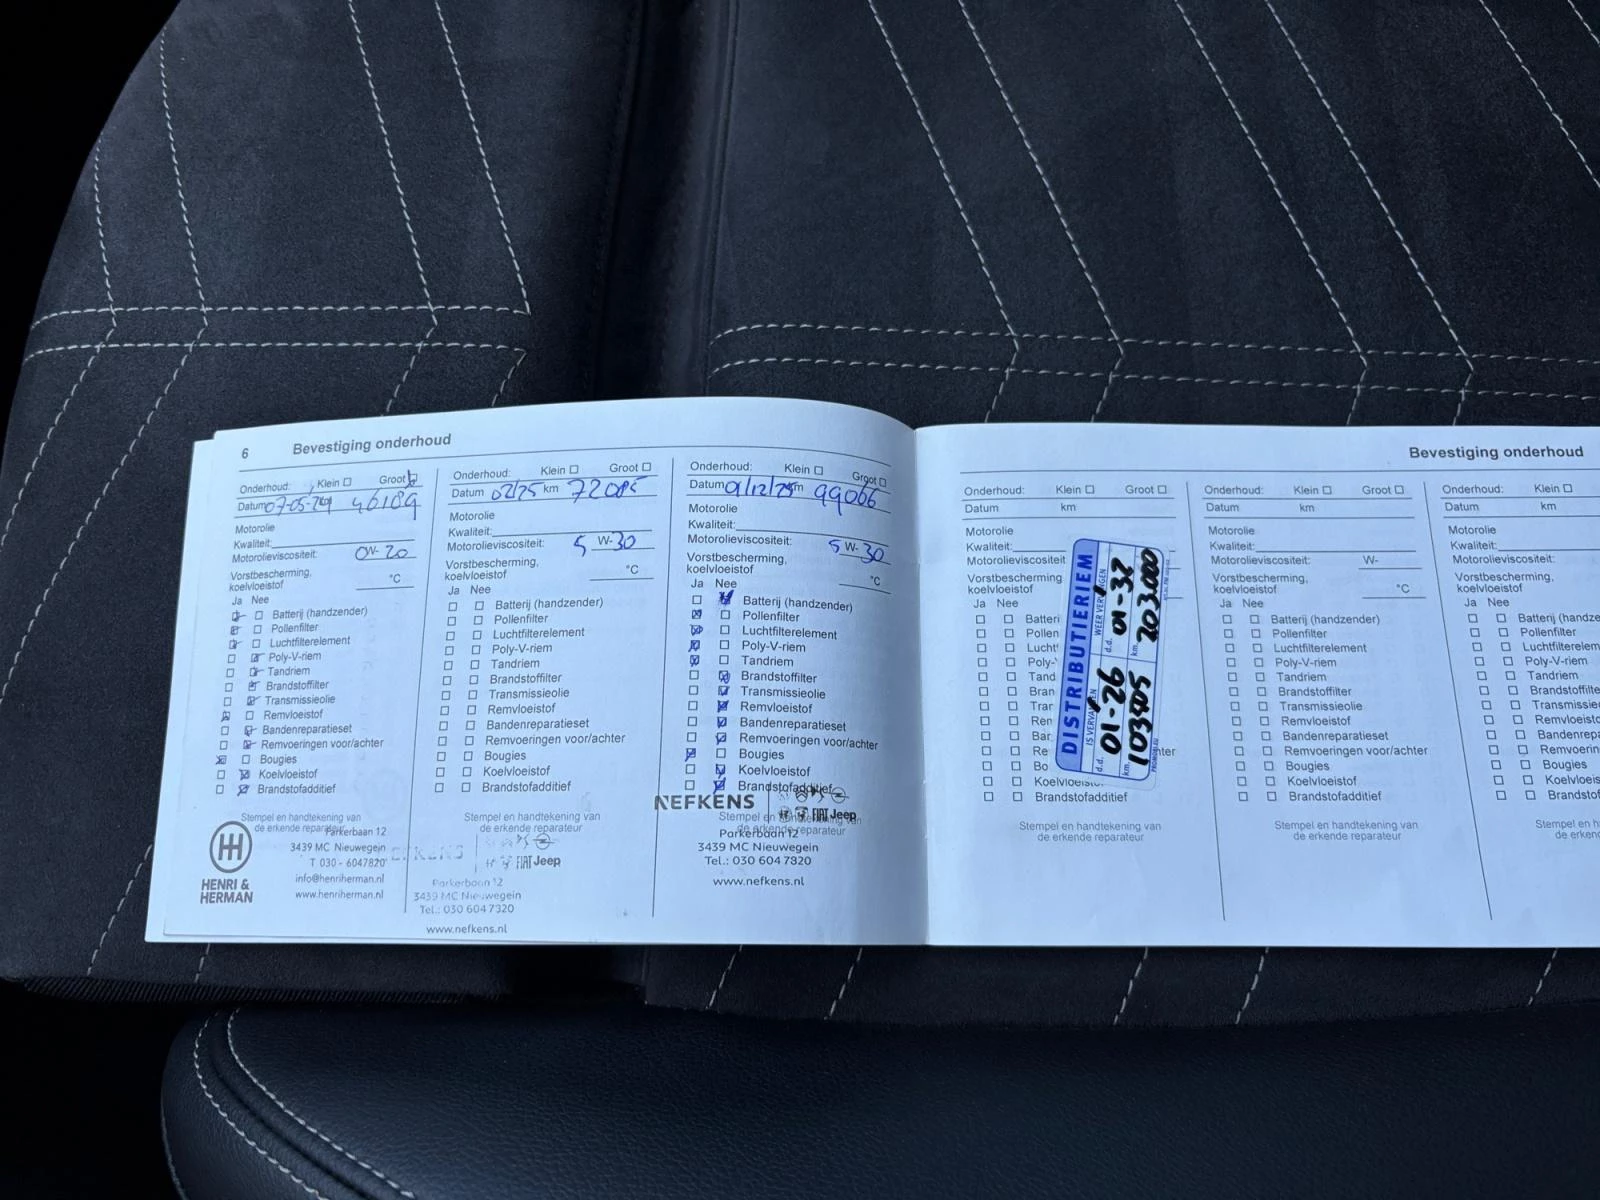 6 Bevestiging onderhoud
Onderhoud: Klein Groot
Datum 07-05-24 46189
Motorolie
Kwaliteit:
Motorolieviscositeit: 0W-20
Vorstbescherming,
koelvloeistof °C
Ja Nee
Batterij (handzender)
Pollenfilter
Luchtfilterelement
Poly-V-riem
Tandriem
Brandstoffilter
Transmissieolie
Remvloeistof
Bandenreparatieset
Remvoeringen voor/achter
Bougies
Koelvloeistof
Brandstofadditief
Stempel en handtekening van
de erkende reparateur
HENRI &
HERMAN
Parkerbaan 12
3439 MC Nieuwegein
T 030 - 6047820
info@henriherman.nl
www.henriherman.nl
Onderhoud: Klein Groot
Datum 02/25 km 72085
Motorolie
Kwaliteit:
Motorolieviscositeit: 5 W-30
Vorstbescherming,
koelvloeistof °C
Ja Nee
Batterij (handzender)
Pollenfilter
Luchtfilterelement
Poly-V-riem
Tandriem
Brandstoffilter
Transmissieolie
Remvloeistof
Bandenreparatieset
Remvoeringen voor/achter
Bougies
Koelvloeistof
Brandstofadditief
Stempel en handtekening van
de erkende reparateur
FIAT Jeep
Parkerbaan 12
3439 MC Nieuwegein
Tel.: 030 604 7320
www.nefkens.nl
Onderhoud: Klein Groot
Datum 01/12/25 km 99066
Motorolie
Kwaliteit:
Motorolieviscositeit: 5 W-30
Vorstbescherming,
koelvloeistof °C
Ja Nee
Batterij (handzender)
Pollenfilter
Luchtfilterelement
Poly-V-riem
Tandriem
Brandstoffilter
Transmissieolie
Remvloeistof
Bandenreparatieset
Remvoeringen voor/achter
Bougies
Koelvloeistof
Brandstofadditief
NEFKENS
FIAT Jeep
Stempel en handtekening van
de erkende reparateur
Parkerbaan 12
3439 MC Nieuwegein
Tel.: 030 604 7820
www.nefkens.nl
Bevestiging onderhoud
Onderhoud: Klein Groot
Datum km
Motorolie
Kwaliteit:
Motorolieviscositeit
Vorstbescherming
koelvloeistof
Ja Nee
Batteri
Pollen
Lucht
Poly-
Tand
Bran
Tran
Ren
Ban
Re
Bo
Koelvloeist
Brandstofadditief
Stempel en handtekening van
de erkende reparateur
DISTRIBUTIERIEM
IS VERVANGEN WEER VERVANGEN
d.d. 01-26 d.d. 01-32
km. km. 203.000
Onderhoud: Klein Groot
Datum km
Motorolie
Kwaliteit:
Motorolieviscositeit: W-
Vorstbescherming,
koelvloeistof °C
Ja Nee
Batterij (handzender)
Pollenfilter
Luchtfilterelement
Poly-V-riem
Tandriem
Brandstoffilter
Transmissieolie
Remvloeistof
Bandenreparatieset
Remvoeringen voor/achter
Bougies
Koelvloeistof
Brandstofadditief
Stempel en handtekening van
de erkende reparateur
Onderhoud: Klein
Datum km
Motorolie
Kwaliteit:
Motorolieviscositeit:
Vorstbescherming,
koelvloeistof
Ja Nee
Batterij (handze
Pollenfilter
Luchtfilterelem
Poly-V-riem
Tandriem
Brandstoffilte
Transmissie
Remvloeisto
Bandenrepa
Remvoerin
Bougies
Koelvloeis
Brandsto
Stempel en h
de erken